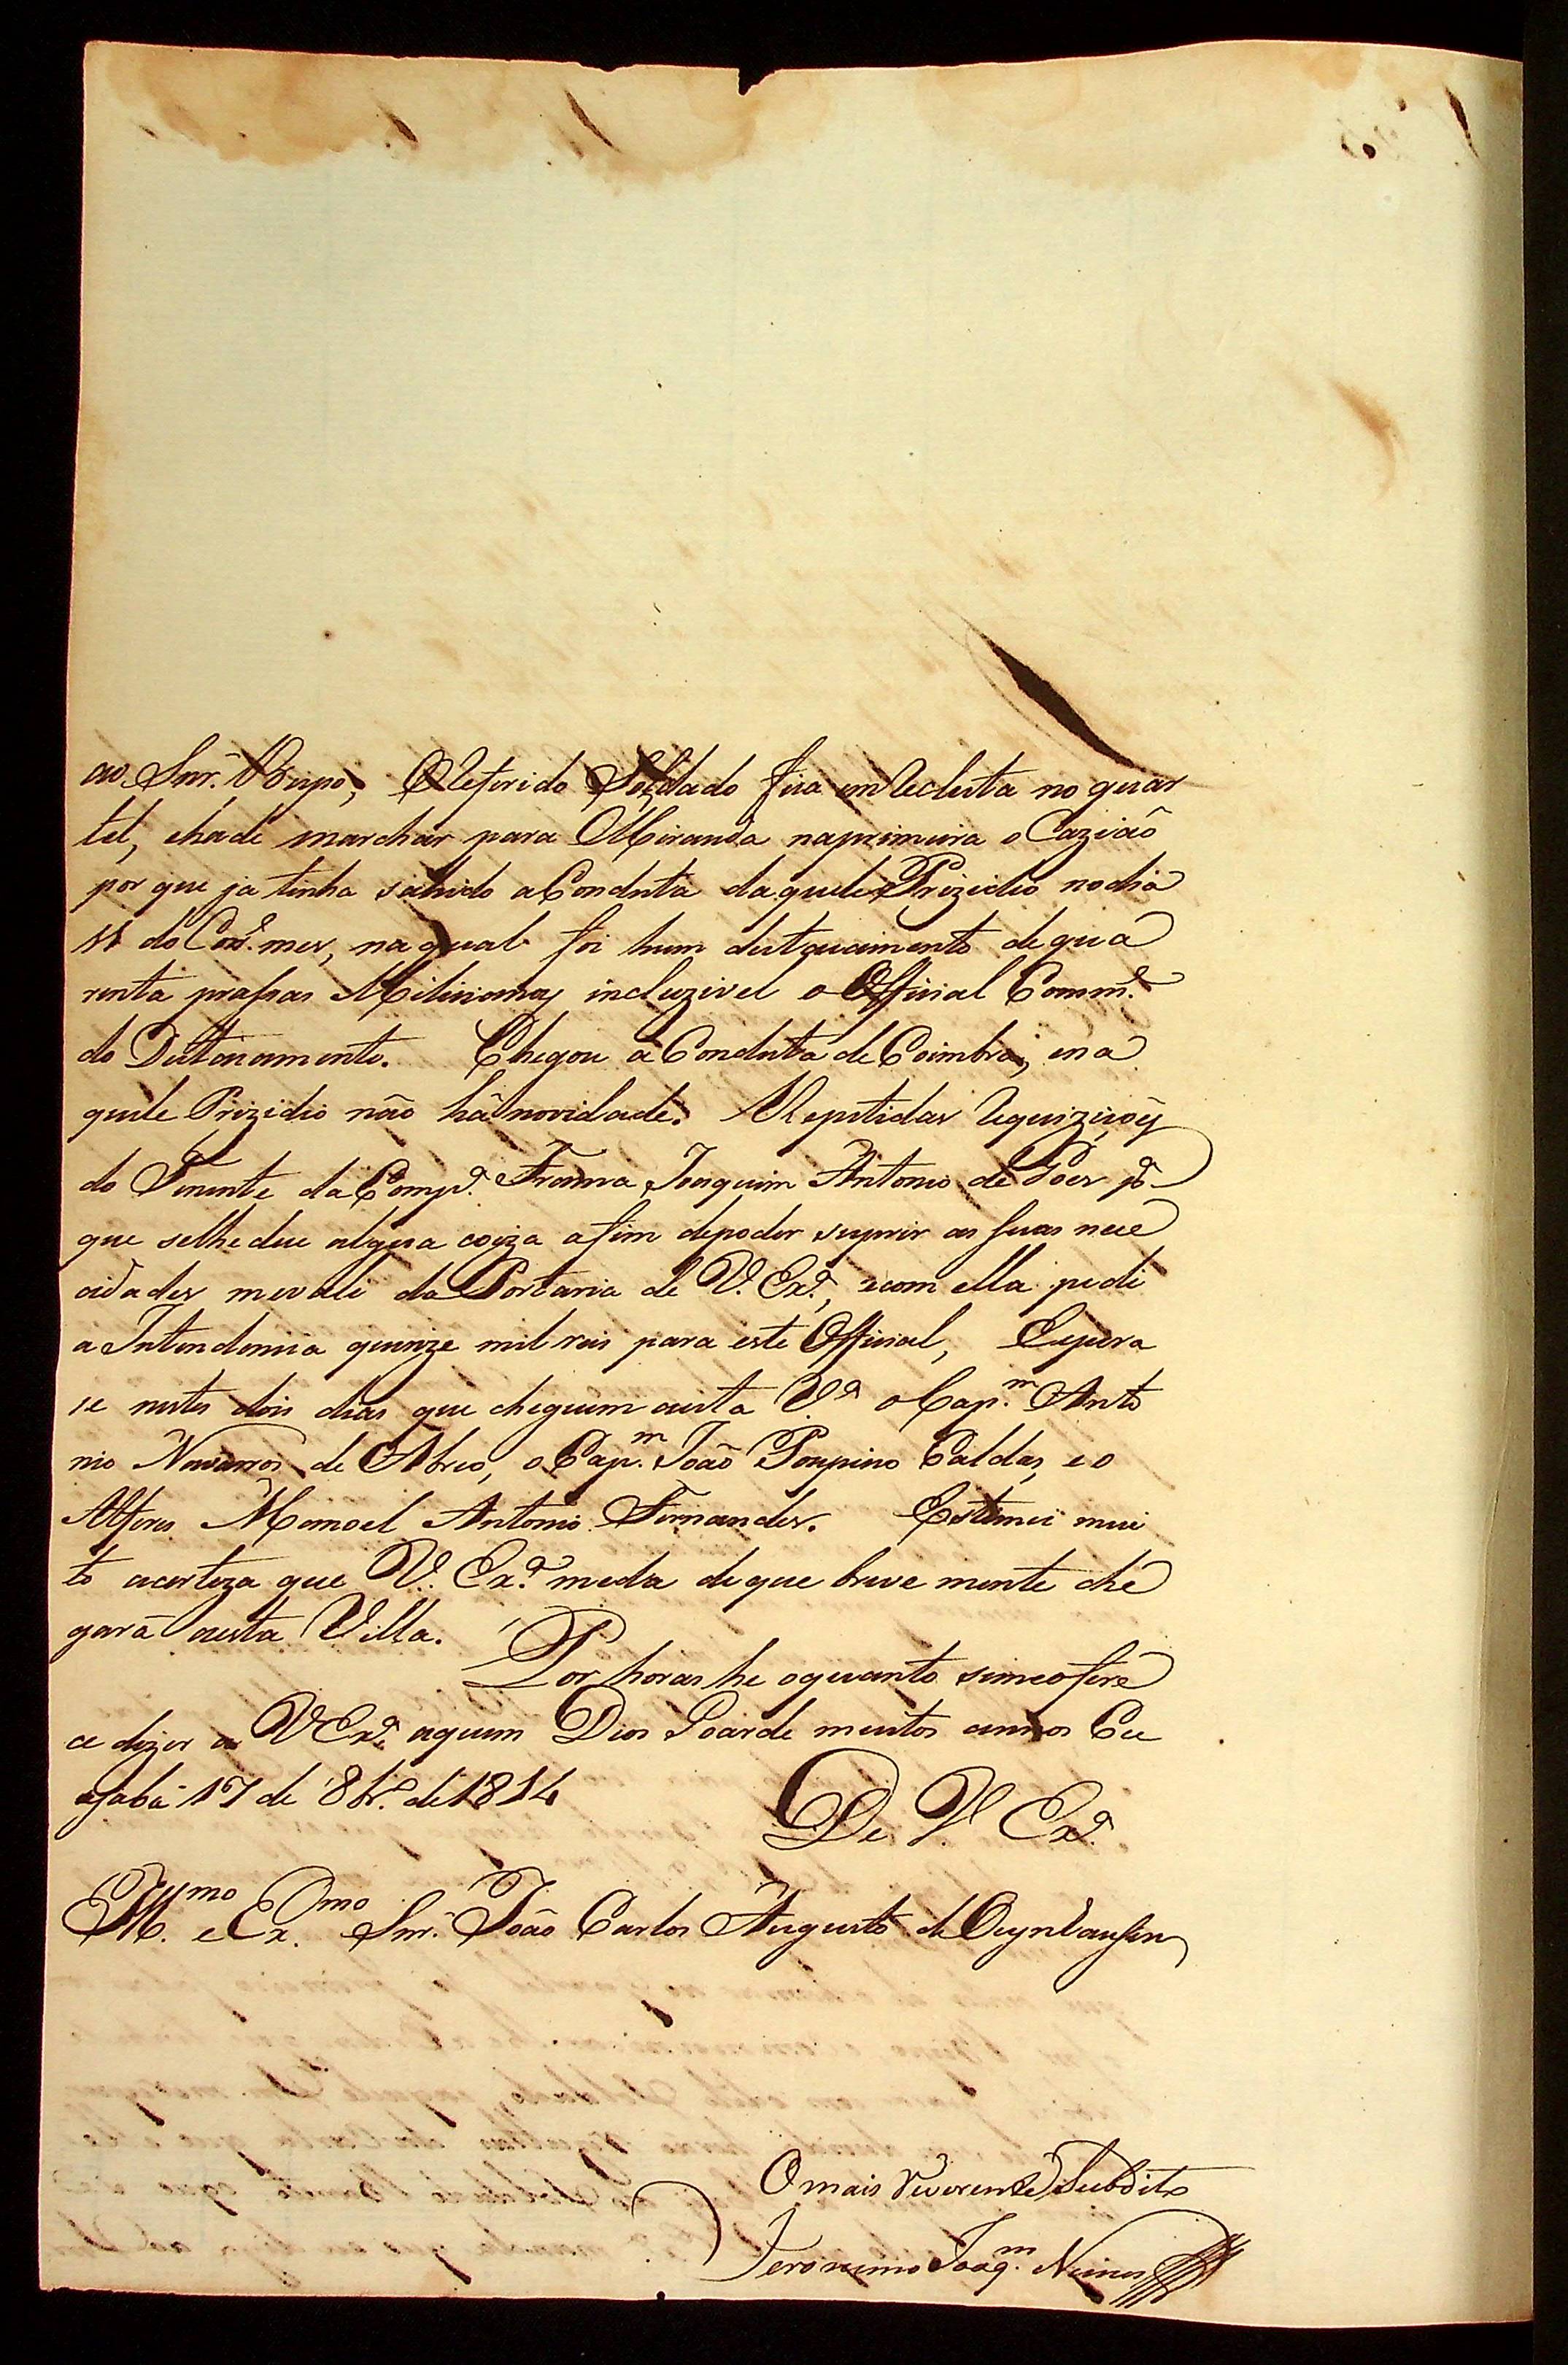 ao Snr. Bispo; O Referido Soldado fica em Reclusta no quar
tel, ehade marchar para Miranda naprimeira oCazião
por que ja tinha sahido aConduta daquele Prizidio nodia
11 do Corr.e mes, naqual foi hum destacamento dequa
renta prassas Milicianas incluzivel o Official Comm.e
do Destacamento. Chegou a Conduta de Coimbra, ena
quele Prizidio não há novidade. Repetidas Requiziçoẽs
do Tenente da Comp.a Franca Joaquim Antonio de Goes p.a
que selhedeue algũa coiza afim depoder suprir as suas nece
cidades mevali da Portaria de V. Ex.a, ecom ella pedi
a Intendencia quinze mil reis para este Official, Espera
se nestes dois dias que cheguem aesta V.a o Cap.m Anto
nio Navarros de Abreo, o Cap.m João Poupino Caldas, e o
Alferes Manoel Antonio Fernandes. Estimei mui
to acerteza que V. Ex.a meda deque breve mente che
gará aesta Villa.
Por horas he oquanto simeofere
ce dizer a V Ex.a aquem Deos Goarde muitos annos Cu
yaba 17 de 8br.o de 1814
De V. Ex.a
Ill.mo e Ex.mo Snr. João Carlos Augusto de Oeynhausen
O mais Reverente Subdito
Jeronimo Joaq.m Nunes